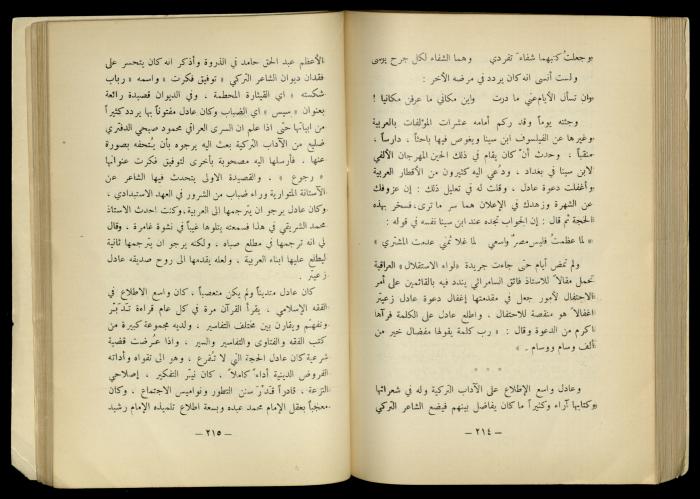 وجعلتُ كتبهما شفاءَ تفردي وهما الشفاء لكل جرح يوسى
ولست أنسى انه كان يردد في مرضه الأخير :
وان تسأل الأيام عني ما درت واين مكاني ما عرفن مكانيا !
وجئته يوماً وقد ركم أمامه عشرات المؤلفات بالعربية
وغيرها عن الفيلسوف ابن سينا ويغوص فيها باحثاً ، دارساً ،
منقباً ، وحدث أنْ كان يقام في ذلك الحين المهرجان الألفي
لابن سينا في بغداد ، ودُعي اليه كثيرون من الأقطار العربية
وأغفلت دعوة عادل ، وقلت له في تعليل ذلك : إن عزوفك
عن الشهرة وزهدك في الإعلان هما سر ما ترى، فسخر بهذه
الحجة ثم قال : إن الجواب تجده عند ابن سينا نفسه في قوله :
لما عظمتُ فليس مصرٌ واسعي لما غلا ثمني عدمت المشتري »
ولم تمض أيام حتى جاءت جريدة «لواء الاستقلال» العراقية
تحمل مقالاً للاستاذ فائق السامرائي يندد فيه بالقائمين على أمر
الاحتفال لأمور جعل في مقدمتها إغفال دعوة عادل زعيتر
إغفالاً هو منقصة للاحتفال ، واطلع عادل على الكلمة فرآها
اكرم من الدعوة وقال : « رب كلمة يقولها مفضال خير من
ألف وسام ووسام . »
* * *
وعادل واسع الإطلاع على الآداب التركية وله في شعرائها
وكتابها آراء وكثيراً ما كان يفاضل بينهم فيضع الشاعر التركي
— ٢١٤ —
الأعظم عبد الحق حامد في الذروة وأذكر انه كان يتحسر على
فقدان ديوان الشاعر التركي « توفيق فكرت » واسمه « رباب
شكسته » اي القيثارة المحطمة ، وفي الديوان قصيدة رائعة
بعنوان « سيس » اي الضباب وكان عادل مفتوناً بها يردد كثيراً
من ابياتها حتى اذا علم ان السرى العراقي محمود صبحي الدفتري
ضليع من الآداب التركية بعث اليه يرجوه بأن يُتحفه بصورة
عنها ، فأرسلها اليه مصحوبة بأخرى لتوفيق فكرت عنوانها
« رجوع » ، والقصيدة الاولى يتحدث فيها الشاعر عن
الآستانة المتوارية وراء ضباب من الشرور في العهد الاستبدادي ،
وكان عادل يرجو ان يترجمها الى العربية، وكنت احدث الاستاذ
محمد الشريقي في هذا فسمعته يتلوها غيباً في نشوة غامرة ، وقال
لي انه ترجمها في مطلع صباه ، ولكنه يرجو ان يترجمها ثانية
ليطلع عليها ابناء العربية ، ولعله يقدمها الى روح صديقه عادل
زعيتر .
كان عادل متديناً ولم يكن متعصباً ، كان واسع الاطلاع في
الفقه الإسلامي ، يقرأ القرآن مرة في كل عام قراءة تَدَبّر
وتفهم ويقارن بين مختلف التفاسير ، ولديه مجموعة كبيرة من
كتب الفقه والفتاوى والتفاسير والسير ، واذا عُرضت قضية
شرعية كان عادل الحجة التي لا تُقرع ، وهو الى تقواه وأدائه
الفروض الدينية أداءً كاملاً ، كان نيّر التفكير ، إصلاحي
النزعة ، قادراً قَدْرَ سنن التطور ونواميس الاجتماع ، وكان
معجباً بعقل الإمام محمد عبده وبسعة اطلاع تلميذه الإمام رشيد
— ٢١٥ —